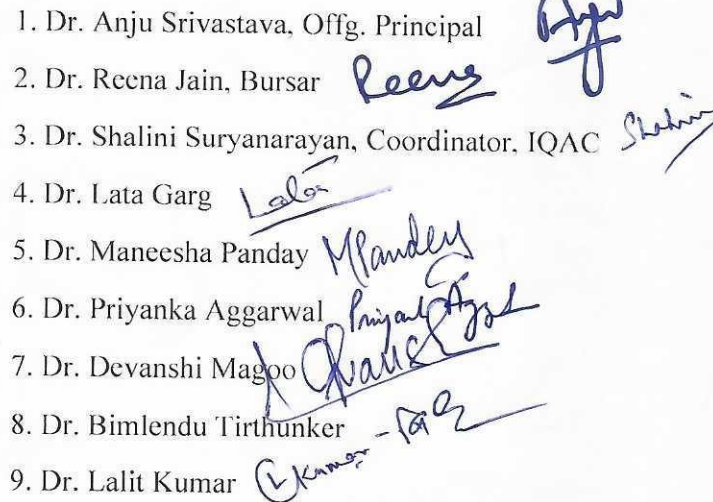 1. Dr. Anju Srivastava, Offg. Principal
2. Dr. Reena Jain, Bursar Reena
3. Dr. Shalini Suryanarayan, Coordinator, IQAC Shalini
4. Dr. Lata Garg Lata
5. Dr. Maneesha Panday MPandey
6. Dr. Priyanka Aggarwal
7. Dr. Devanshi Magoo
8. Dr. Bimlendu Tirthunker
9. Dr. Lalit Kumar Kumar